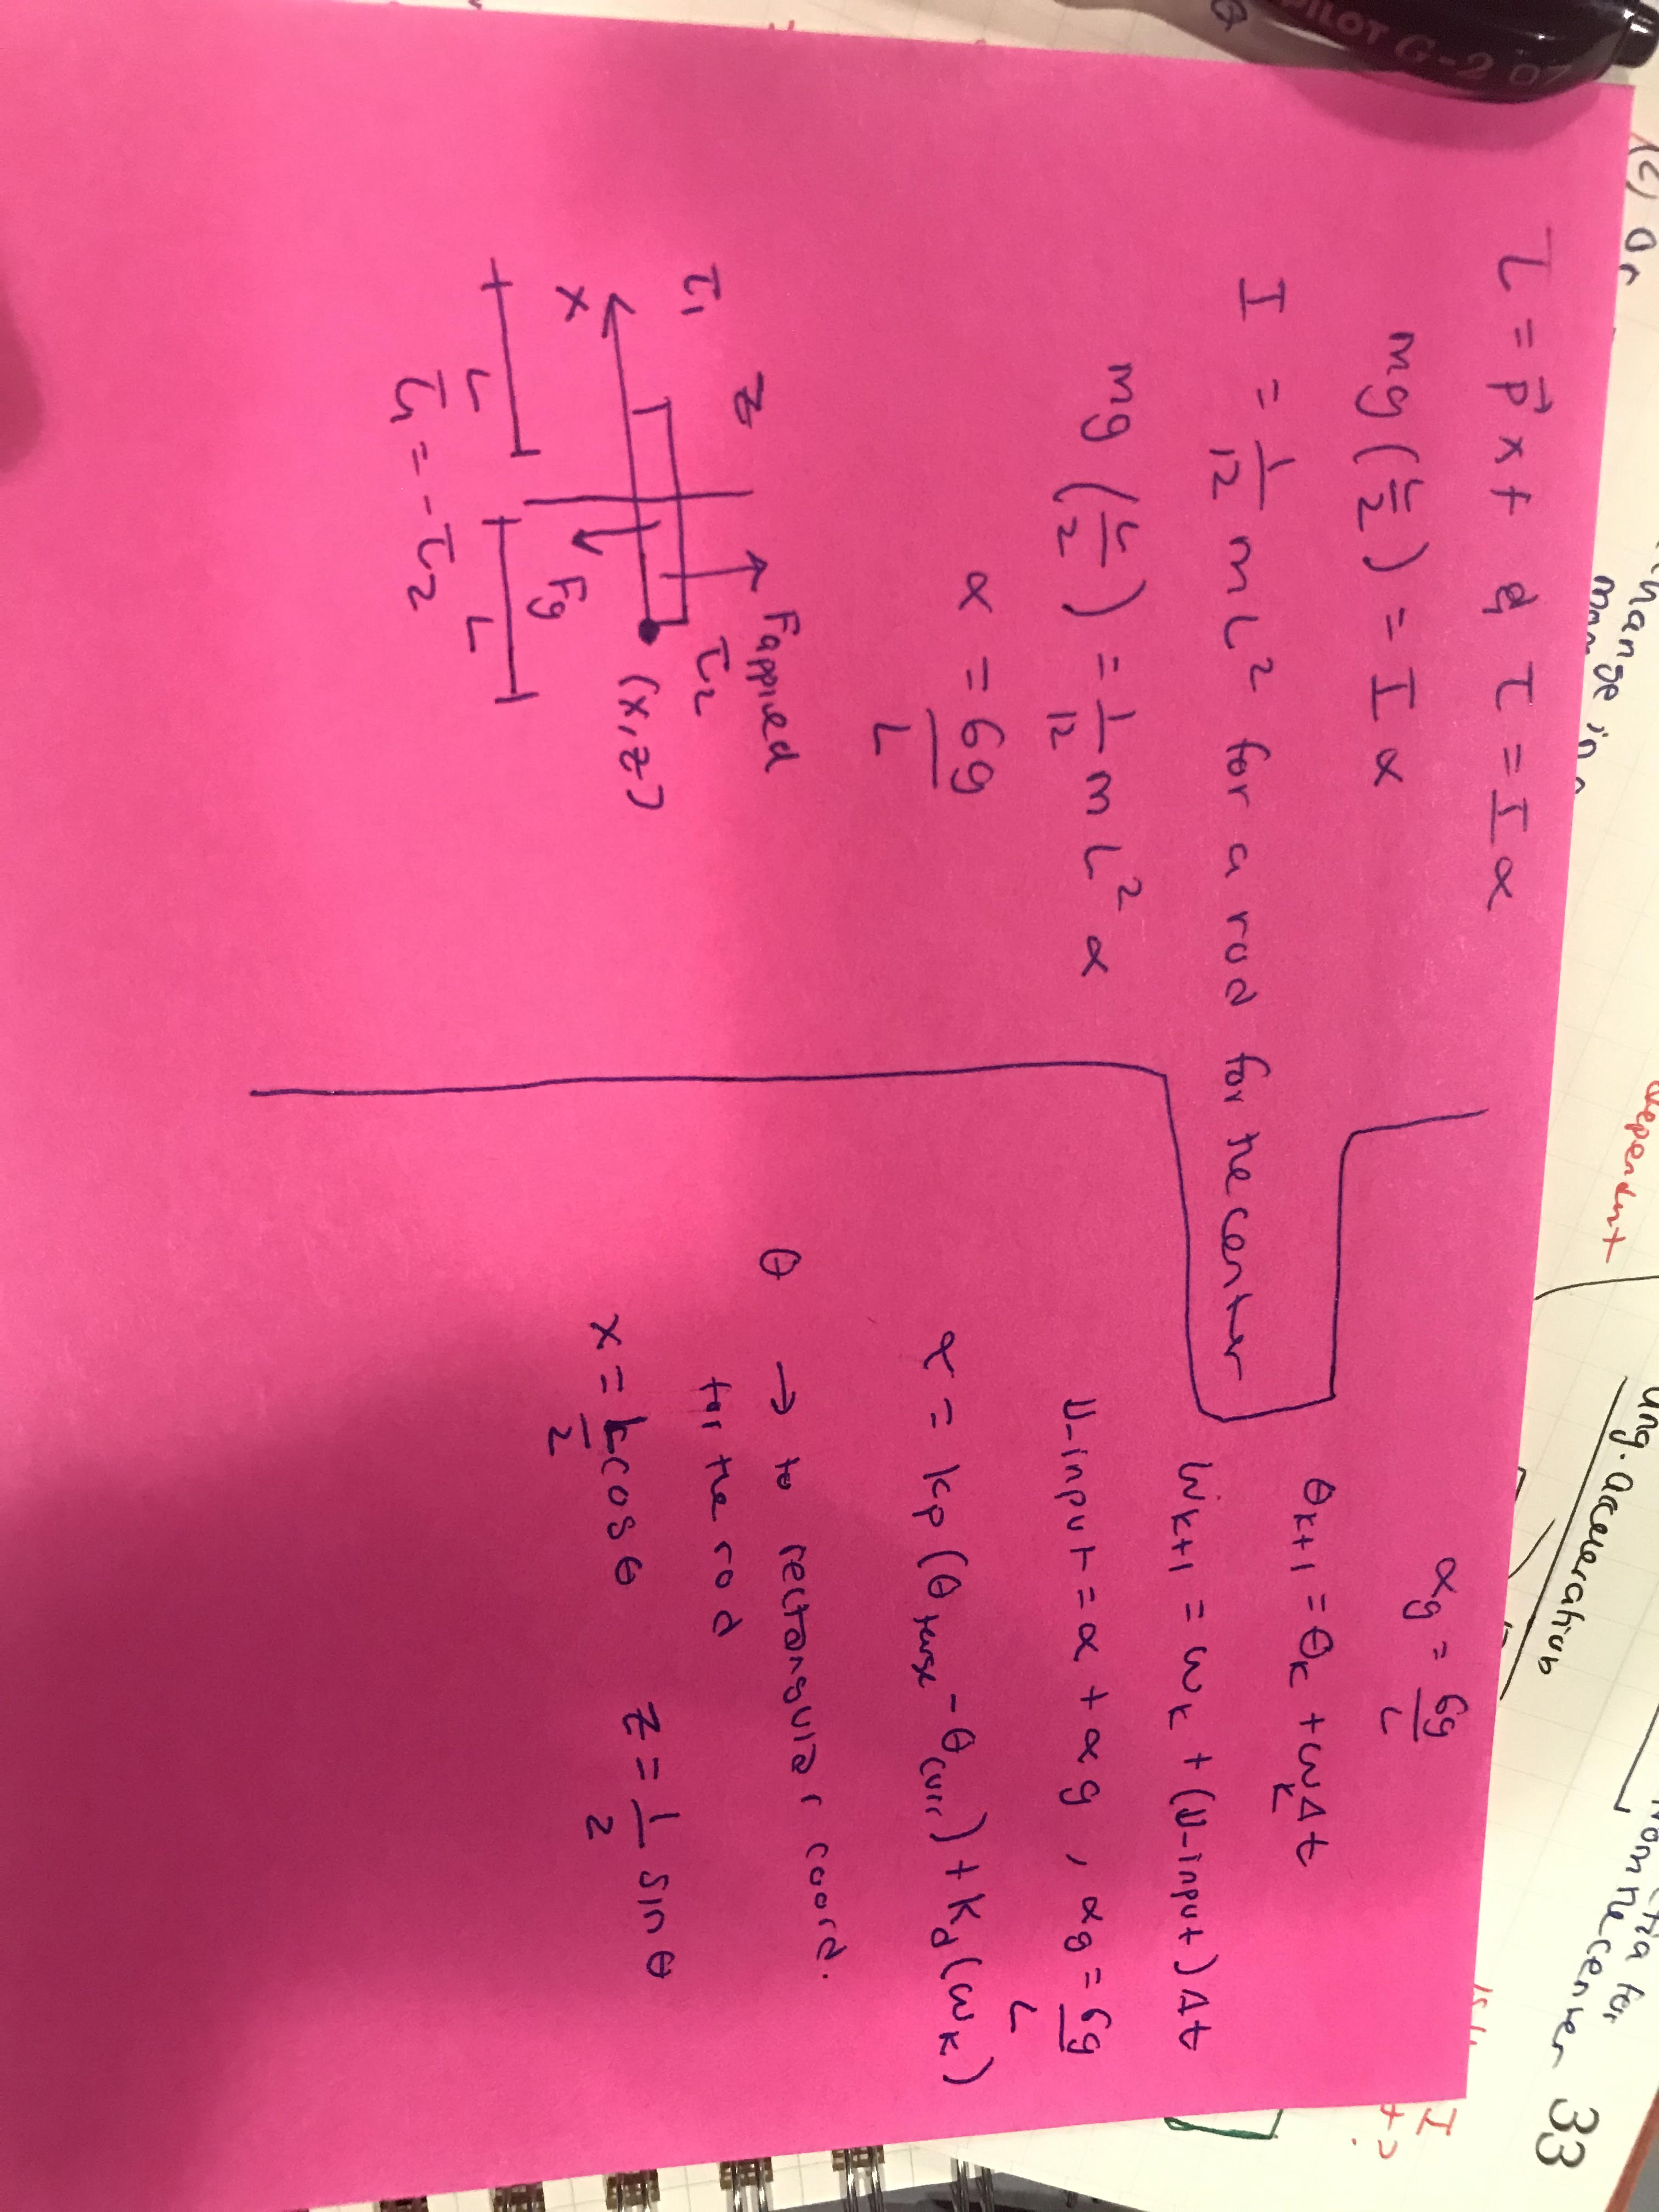 (c) Or
change in a
dependent
ang. acceleration
tia for
from the center
33
I
t?
PILOT G-2 07
τ = p⃗ x f & τ = I α
mg (L/2) = I α
I = 1/12 m L² for a rod for the center
mg (L/2) = 1/12 m L² α
α = 6g/L
Fapplied
z
τ1
τ2
(x,z)
x
Fg
L
L
τ1 = -τ2
αg = 6g/L
θk+1 = θk + ωk Δt
ωk+1 = ωk + (U-input) Δt
U-input = α + αg , αg = 6g/L
α = kp (θtarge - θcurr) + Kd (ωk)
θ → to rectangular coord.
for the rod
x = L/2 cos θ z = 1/2 sin θ